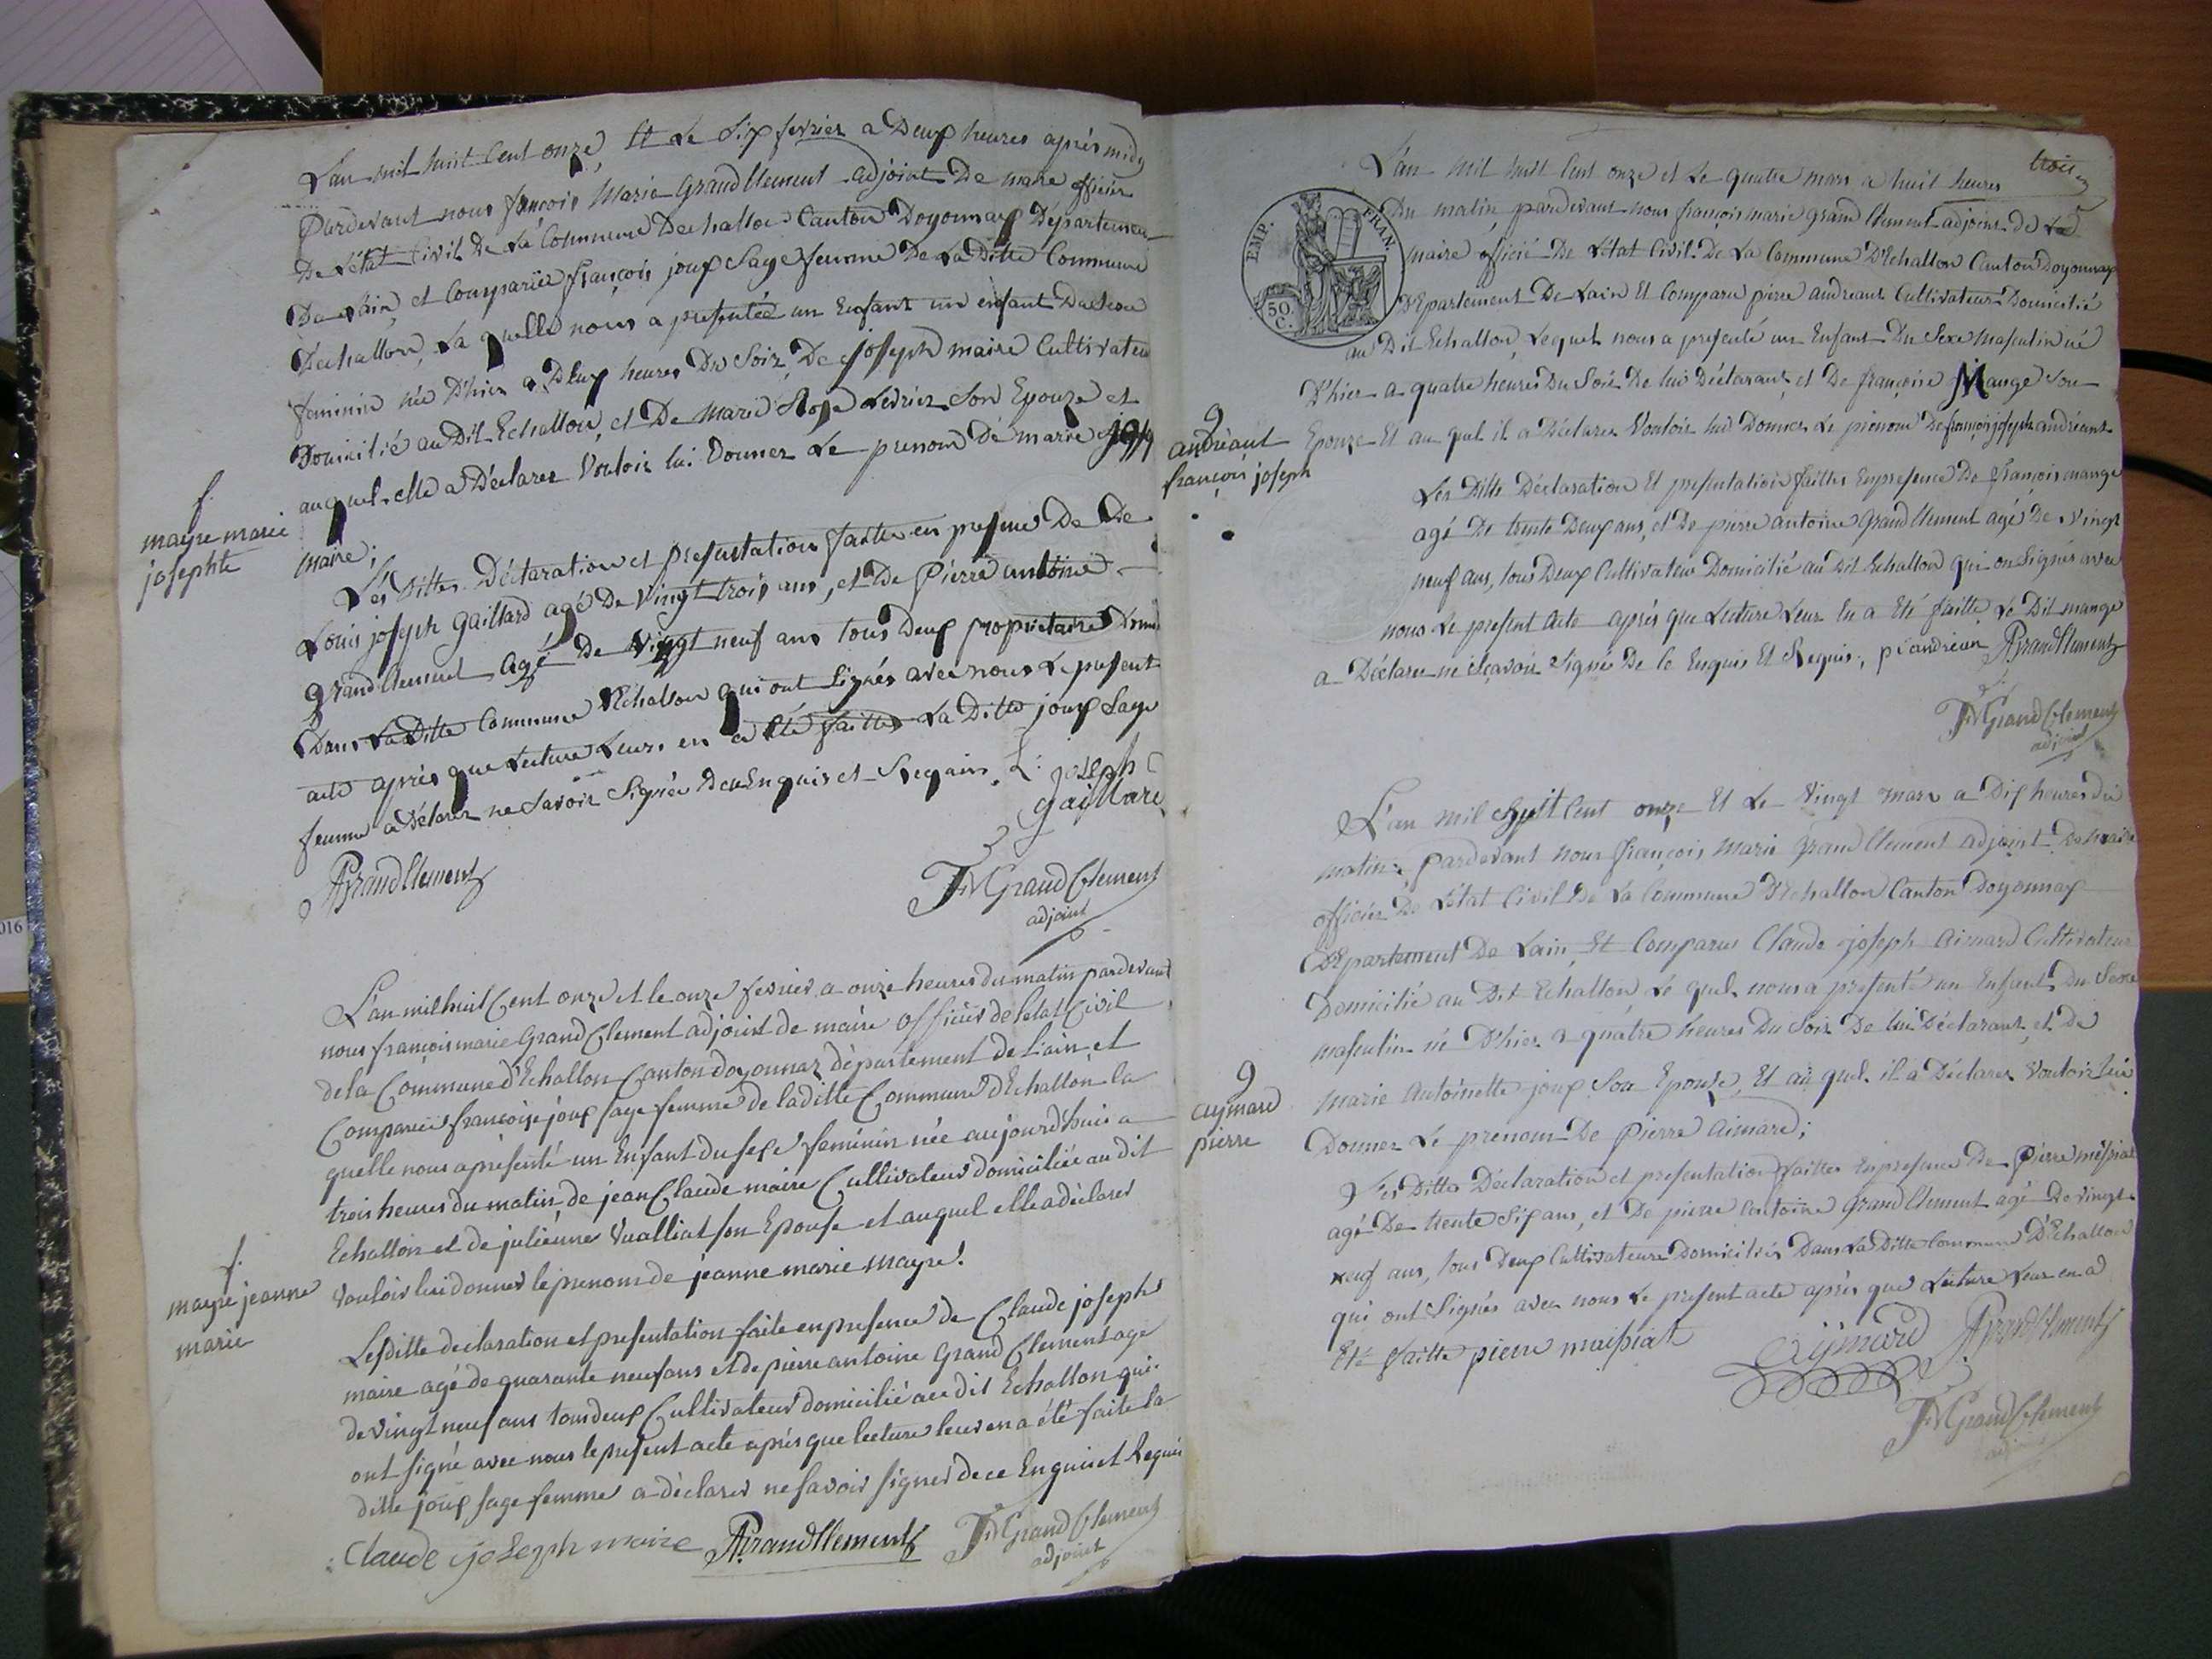 L'an mil huit Cent onze, Et Le Six fevrier a Deux heures après midy
Pardevant nous françois Marie Grand Clement adjoint De maire officier
De L'état Civil De La Commune Dechallon Canton Doyonnax Département
De L'ain, et Comparüe françoise joux Sage femme De La Ditte Commune
Dechallon, La quelle nous a presentée un Enfant un enfant Du Sexe
feminin née D'hier a Deux heures Du Soir, De joseph maire Cultivateur
Domicilié au Dit Echallon, et De Marie Rose Levrier Son Epouze et
auquel elle a Déclarer Vouloir lui Donner Le prenom De marie josephte
f.
mayre marie
josephte
maire;
Les Dittes Déclaration et presentation faitte en presence De De
Louis joseph Gaillard agé De Vingt trois ans, et De Pierre antoine
Grand Clement Agé De Vingt neuf ans tous Deux propriétaires Dom
Dans La Ditte Commune D'Echallon qui ont Signés avec nous Le present
acte après que Lecture Leurs en a Eté faitte La Ditte joux Sage
femme a Déclarer ne Savoir Signée De ce Enquis et Requis. L: joseph
gaillard
PAGrandClement
FMGrandClement
adjoint
L'an mil huit Cent onze et le onze fevrier a onze heures du matin pardevant
nous françois marie Grand Clement adjoint de maire officier de l'etat Civil
de la Commune d'Echallon Canton doyonnax département de l'ain, et
Comparüe françoise joux sage femme de la ditte Commune d'Echallon la
quelle nous a presenté un Enfant du sexe feminin née aujourd'huis a
trois heures du matin de jean Claude maire Cultivateur domiciliée au dit
Echallon et de julienne Vualliat son Epouse et auquel elle a déclarer
vouloir lui donner le prenom de jeanne marie mayre.
f.
mayre jeanne
marie
Lesditte declaration et presentation faite en presence de Claude joseph
maire agé de quarante neuf ans et de pierre antoine Grand Clement age
de vingt neuf ans tous deux Cultivateur domicilié au dit Echallon qui
ont signé avec nous le present acte après que lecture leur en a été faite la
ditte joux sage femme a déclarer ne savoir signer de ce Enquis et Requis
Claude joseph maire PAGrandClement FMGrandClement
adjoint
trois
L'an mil huit Cent onze et Le quatre mars a huit heures
Du matin pardevant nous françois marie grand Clement adjoint De La
maire officié De L'état Civil De La Commune D'Echallon Canton Doyonnax
Département De Lain Et Comparu pierre andreanx Cultivateur Domicilié
au Dit Echallon, Lequel nous a presenté un Enfant Du Sexe masculin né
D'hier a quatre heures Du Soir De lui Déclarant et De françoise Mange son
Epouze Et au quel il a Déclarer Vouloir lui Donner Le prénom De françois joseph andréant
EMP. FRAN.
50
C.
9
andréant
françois joseph
Les Ditte Déclaration Et presentation faittes En presence De françois mange
agé De trente Deux ans, et De pierre antoine Grand Clement agé De Vingt
neuf ans, tous Deux Cultivateur Domicilié au Dit Echallon qui on Signés avec
nous Le present Acte après que Lecture Leur En a Eté faitte, Le Dit mange
a Déclaree ne Sçavoir Signés De Ce Enquis Et Requis; PAGrandClement
FMGrandClement
adjoint
L'an mil huit Cent onze Et Le Vingt mars a Dix heures du
matin; pardevant nous françois Marie Grand Clement adjoint De maire
officier De L'état Civil De La Commune D'Echallon Canton Doyonnax
Département De Lain, Et Comparus Claude joseph Aimard Cultivateur
Domicilié au Dit Echallon Le quel nous a presenté un Enfant Du Sexe
masculin né D'hier a quatre heures Du Soir De lui Déclarant et De
Marie Antoinette joux Son Epouse, Et au quel il a Déclarer Vouloir lui
Donner Le prenom De Pierre Aimard;
9
aymard
pierre
Les Dittes Déclaration et presentation faittes En presence De Pierre mesiat
agé De trente Six ans, et De pierre antoine Grand Clement agé De vingt
neuf ans, tous Deux Cultivateurs Domiciliés Dans La Ditte Commune D'Echallon
qui ont Signés avec nous Le present acte après que Lecture Leur en a
Eté faitte pierre maissiat Aymard PAGrandClement
FMGrandClement
adjoint